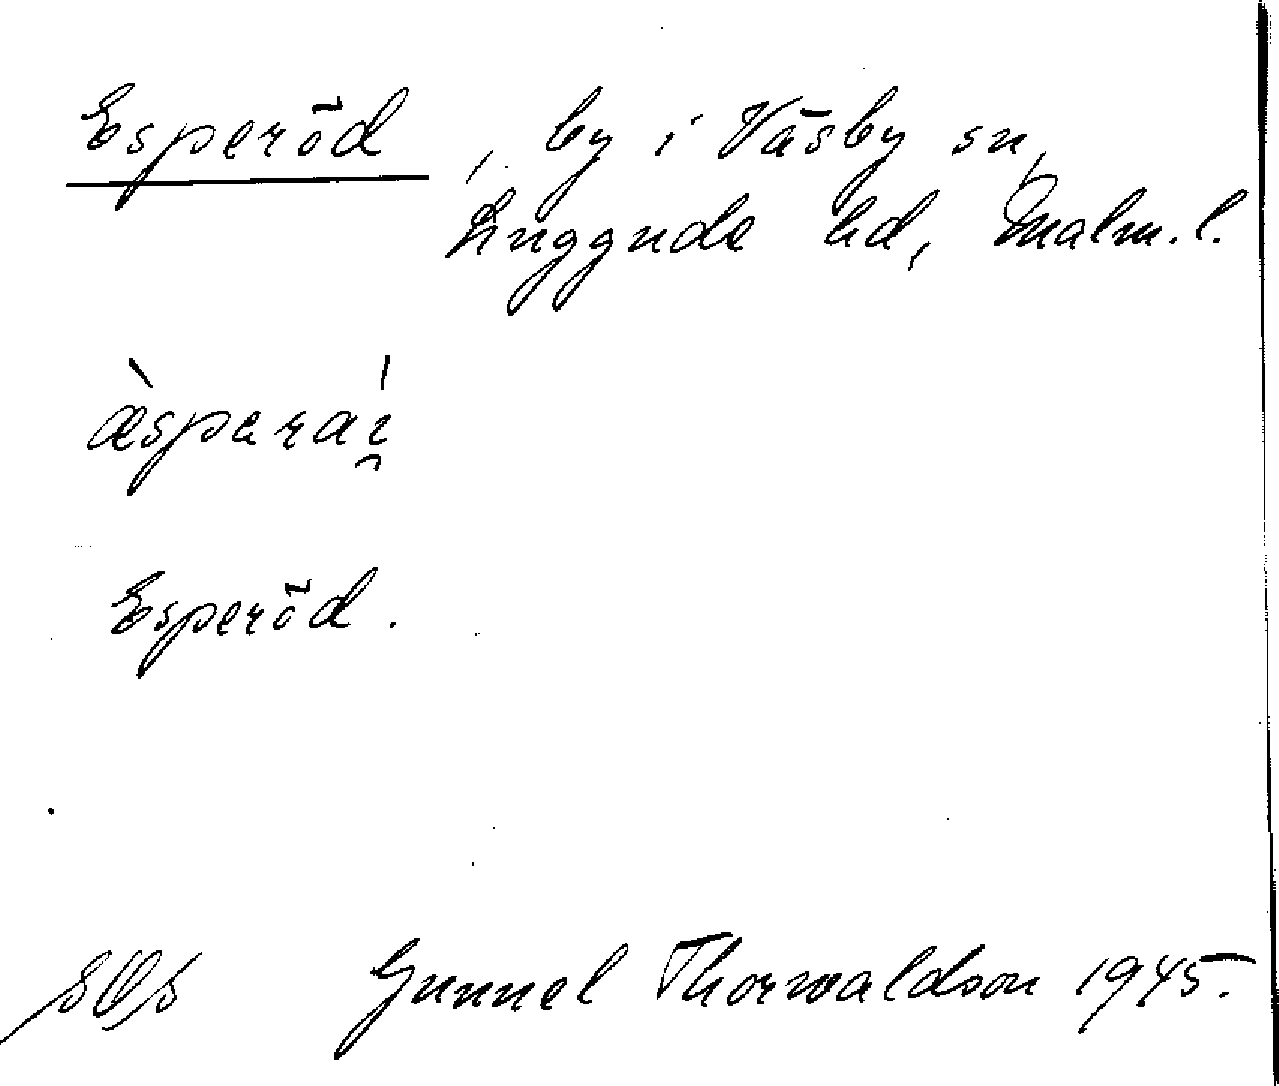 Esperöd, by i Väsby sn,
Luggude hd, Malm. l.
æ̀sparaí̯
Esperöd.
Gunnel Thorwaldson 1945.